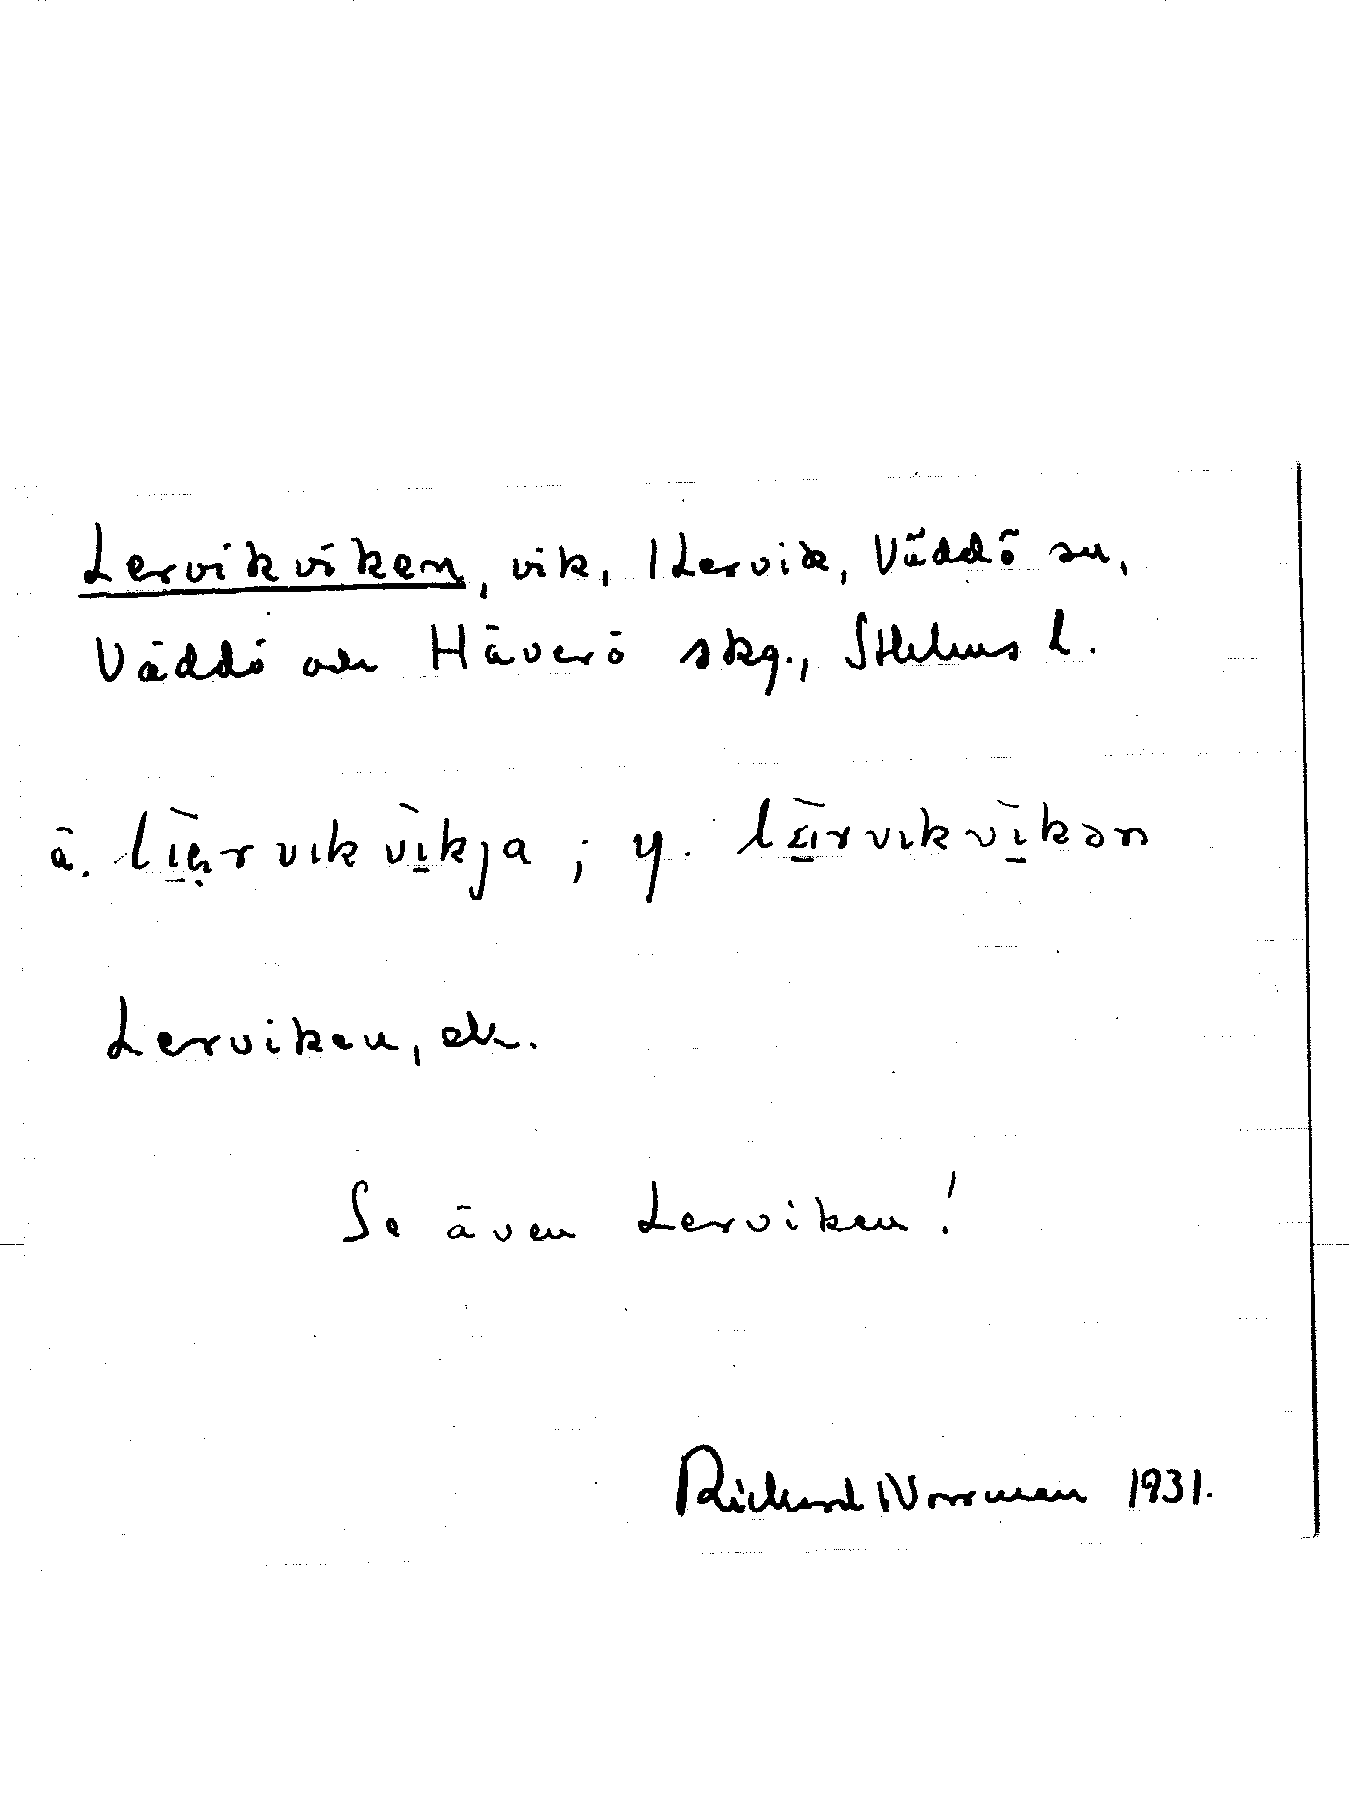 Lervikviken, vik, 1 Lervik, Väddö sn,
Väddö och Häverö skg., Sthlms L.
ä. lı̄ęrvıkvı̄kja ; y. lǟrvıkvı̄kən
Lerviken, ek.
Se även Lerviken!
Rickard Norrman 1931.